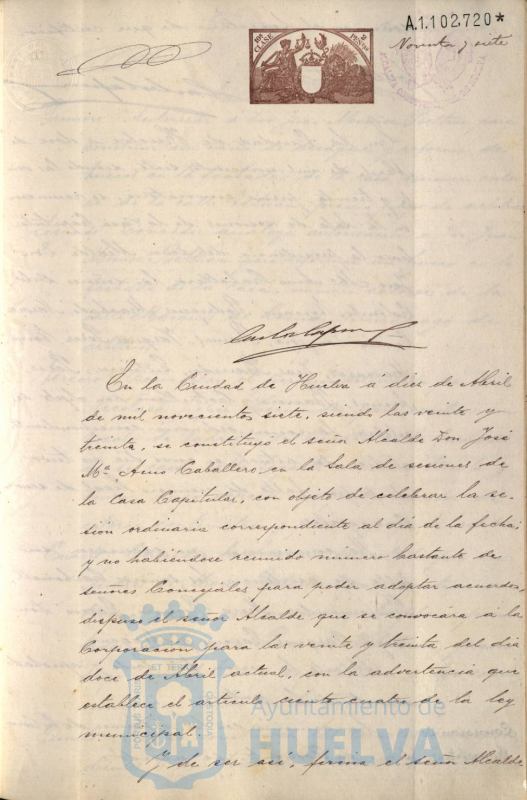 A.1.102.720*
10ª CLASE
2 PESETAS
Noventa y siete
En la Ciudad de Huelva á diez de Abril
de mil novecientos siete, siendo las veinte y
treinta, se constituyó el señor Alcalde Don José
Mª. Caballero, en la Sala de sesiones de
la Casa Capitular, con objeto de celebrar la se-
sión ordinaria correspondiente al dia de la fecha;
y no habiéndose reunido número bastante de
señores Concejales para poder adoptar acuerdos,
dispuso el señor Alcalde que se convocára á la
Corporacion para las veinte y treinta del dia
doce de Abril actual, con la advertencia que
establece el artículo ciento cuatro de la ley
municipal.
Y de ser así, firma el señor Alcalde
Ayuntamiento de
HUELVA